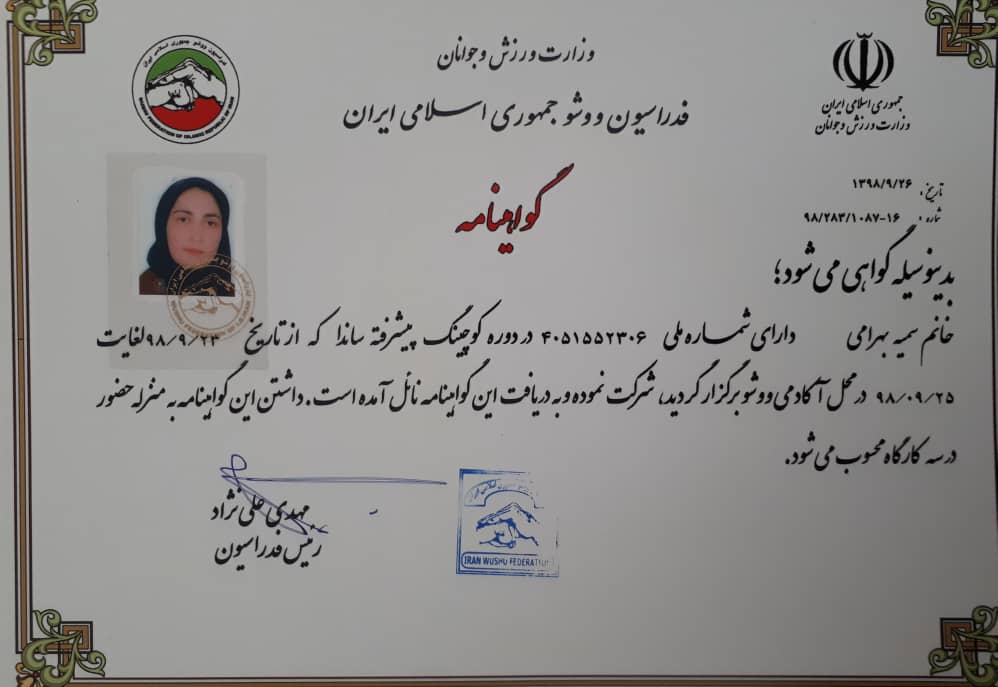 وزارت ورزش و جوانان
فدراسیون ووشو جمهوری اسلامی ایران
فدراسیون ووشو جمهوری اسلامی ایران
WUSHU FEDERATION OF ISLAMIC REPUBLIC OF IRAN
جمهوری اسلامی ایران
وزارت ورزش و جوانان
گواهینامه
تاریخ: ۱۳۹۸/۹/۲۶
شماره: ۹۸/۲۸۳/۱۰۸۷-۱۶
بدینوسیله گواهی می شود؛
خانم سمیه بهرامی دارای شماره ملی ۴۰۵۱۵۵۲۳۰۶ در دوره کوچینگ پیشرفته ساندا که از تاریخ ۹۸/۹/۲۳ لغایت
۹۸/۰۹/۲۵ در محل آکادمی ووشو برگزار گردید، شرکت نموده و به دریافت این گواهینامه نائل آمده است. داشتن این گواهینامه به منزله حضور
در سه کارگاه محسوب می شود.
مهدی علی نژاد
رئیس فدراسیون
IRAN WUSHU FEDERATION